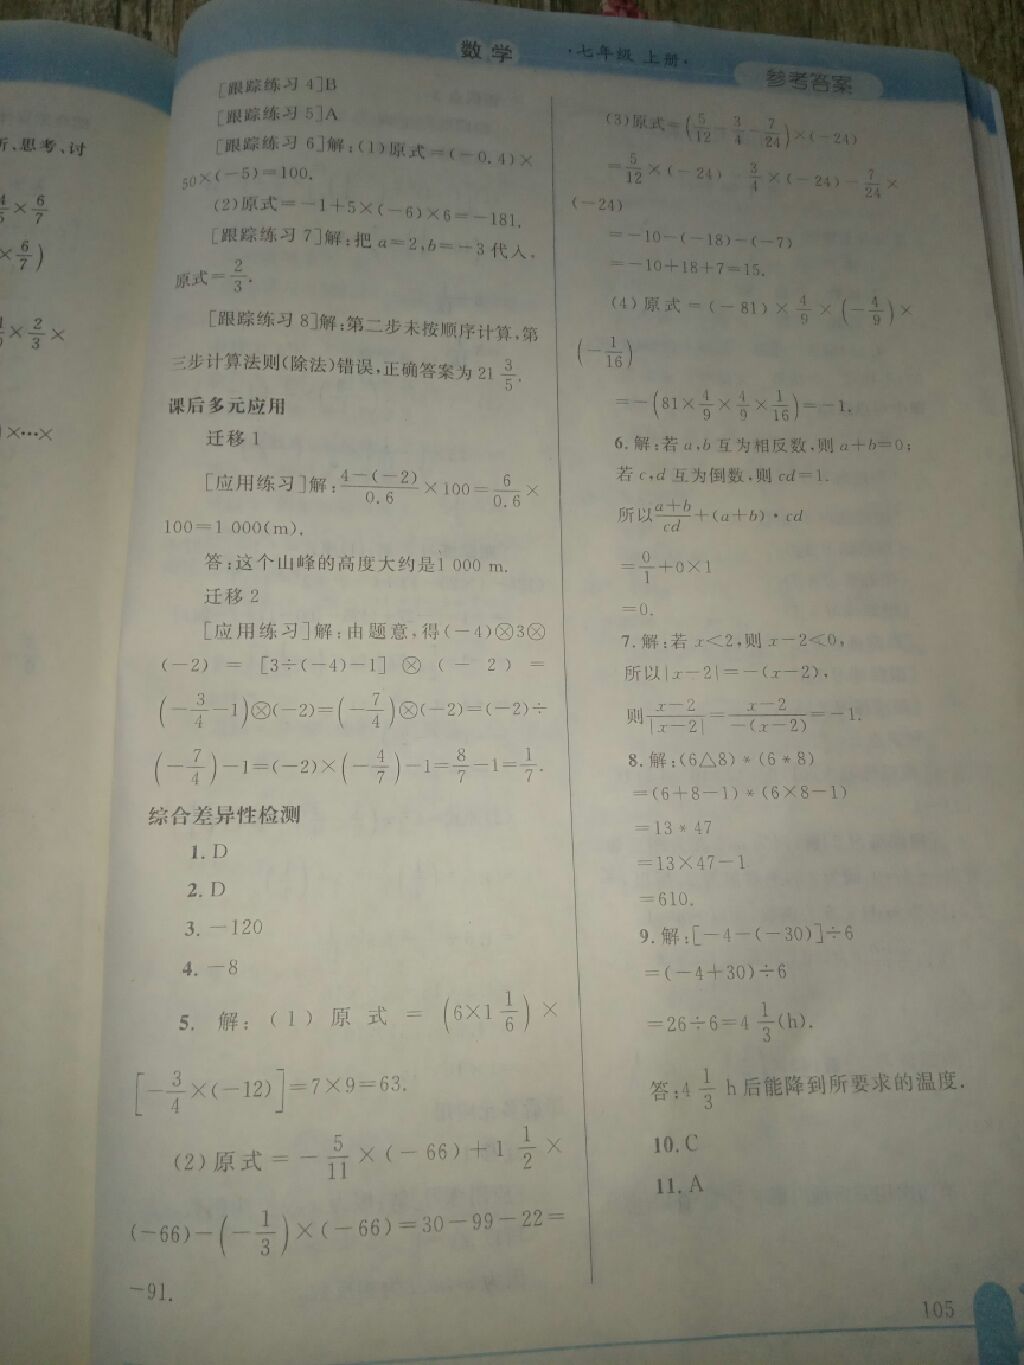 数学
·七年级 上册·
参考答案
析、思考、讨
×6/7
×6/7)
×2/3×
×…×
[跟踪练习 4]B
[跟踪练习 5]A
[跟踪练习 6]解:(1)原式=(-0.4)×
50×(-5)=100.
(2)原式=-1+5×(-6)×6=-181.
[跟踪练习 7]解:把 a=2,b=-3 代入,
原式=2/3.
[跟踪练习 8]解:第二步未按顺序计算,第
三步计算法则(除法)错误,正确答案为 21 3/5.
课后多元应用
迁移 1
[应用练习]解:(4-(-2))/0.6×100=6/0.6×
100=1 000(m),
答:这个山峰的高度大约是1 000 m.
迁移 2
[应用练习]解:由题意,得(-4)⊗3⊗
(-2) = [3÷(-4)-1] ⊗ (-2) =
(-3/4-1)⊗(-2)=(-7/4)⊗(-2)=(-2)÷
(-7/4)-1=(-2)×(-4/7)-1=8/7-1=1/7.
综合差异性检测
1. D
2. D
3. -120
4. -8
5. 解:(1)原式=(6×1 1/6)×
[-3/4×(-12)]=7×9=63.
(2)原式=-5/11×(-66)+1 1/2×
(-66)-(-1/3)×(-66)=30-99-22=
-91.
(3)原式=(5/12-3/4-7/24)×(-24)
=5/12×(-24)-3/4×(-24)-7/24×
(-24)
=-10-(-18)-(-7)
=-10+18+7=15.
(4)原式=(-81)×4/9×(-4/9)×
(-1/16)
=-(81×4/9×4/9×1/16)=-1.
6. 解:若 a,b 互为相反数,则 a+b=0;
若 c,d 互为倒数,则 cd=1.
所以(a+b)/cd+(a+b)·cd
=0/1+0×1
=0.
7. 解:若 x<2,则 x-2<0,
所以|x-2|=-(x-2),
则(x-2)/|x-2|=(x-2)/-(x-2)=-1.
8. 解:(6△8)*(6*8)
=(6+8-1)*(6×8-1)
=13*47
=13×47-1
=610.
9. 解:[-4-(-30)]÷6
=(-4+30)÷6
=26÷6=4 1/3(h).
答:4 1/3 h后能降到所要求的温度.
10. C
11. A
105